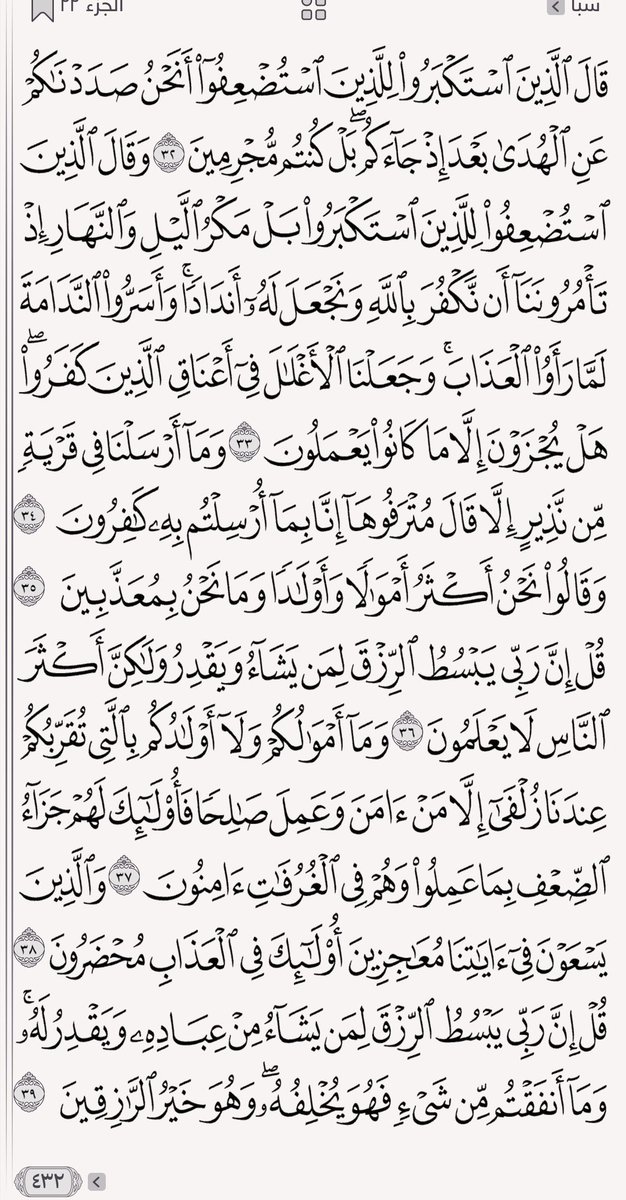 سبأ الجزء ٢٢
قَالَ ٱلَّذِينَ ٱسۡتَكۡبَرُواْ لِلَّذِينَ ٱسۡتُضۡعِفُوٓاْ أَنَحۡنُ صَدَدۡنَٰكُمۡ
عَنِ ٱلۡهُدَىٰ بَعۡدَ إِذۡ جَآءَكُمۖ بَلۡ كُنتُم مُّجۡرِمِينَ ٣٢ وَقَالَ ٱلَّذِينَ
ٱسۡتُضۡعِفُواْ لِلَّذِينَ ٱسۡتَكۡبَرُواْ بَلۡ مَكۡرُ ٱلَّيۡلِ وَٱلنَّهَارِ إِذۡ
تَأۡمُرُونَنَآ أَن نَّكۡفُرَ بِٱللَّهِ وَنَجۡعَلَ لَهُۥٓ أَندَادٗاۚ وَأَسَرُّواْ ٱلنَّدَامَةَ
لَمَّا رَأَوُاْ ٱلۡعَذَابَۚ وَجَعَلۡنَا ٱلۡأَغۡلَٰلَ فِيٓ أَعۡنَاقِ ٱلَّذِينَ كَفَرُواْۖ
هَلۡ يُجۡزَوۡنَ إِلَّا مَا كَانُواْ يَعۡمَلُونَ ٣٣ وَمَآ أَرۡسَلۡنَا فِي قَرۡيَةٖ
مِّن نَّذِيرٍ إِلَّا قَالَ مُتۡرَفُوهَآ إِنَّا بِمَآ أُرۡسِلۡتُم بِهِۦ كَٰفِرُونَ ٣٤
وَقَالُواْ نَحۡنُ أَكۡثَرُ أَمۡوَٰلٗا وَأَوۡلَٰدٗا وَمَا نَحۡنُ بِمُعَذَّبِينَ ٣٥
قُلۡ إِنَّ رَبِّي يَبۡسُطُ ٱلرِّزۡقَ لِمَن يَشَآءُ وَيَقۡدِرُ وَلَٰكِنَّ أَكۡثَرَ
ٱلنَّاسِ لَا يَعۡلَمُونَ ٣٦ وَمَآ أَمۡوَٰلُكُمۡ وَلَآ أَوۡلَٰدُكُم بِٱلَّتِي تُقَرِّبُكُمۡ
عِندَنَا زُلۡفَىٰٓ إِلَّا مَنۡ ءَامَنَ وَعَمِلَ صَٰلِحٗا فَأُوْلَٰٓئِكَ لَهُمۡ جَزَآءُ
ٱلضِّعۡفِ بِمَا عَمِلُواْ وَهُمۡ فِي ٱلۡغُرُفَٰتِ ءَامِنُونَ ٣٧ وَٱلَّذِينَ
يَسۡعَوۡنَ فِيٓ ءَايَٰتِنَا مُعَٰجِزِينَ أُوْلَٰٓئِكَ فِي ٱلۡعَذَابِ مُحۡضَرُونَ ٣٨
قُلۡ إِنَّ رَبِّي يَبۡسُطُ ٱلرِّزۡقَ لِمَن يَشَآءُ مِنۡ عِبَادِهِۦ وَيَقۡدِرُ لَهُۥۚ
وَمَآ أَنفَقۡتُم مِّن شَيۡءٖ فَهُوَ يُخۡلِفُهُۥۖ وَهُوَ خَيۡرُ ٱلرَّٰزِقِينَ ٣٩
٤٣٢